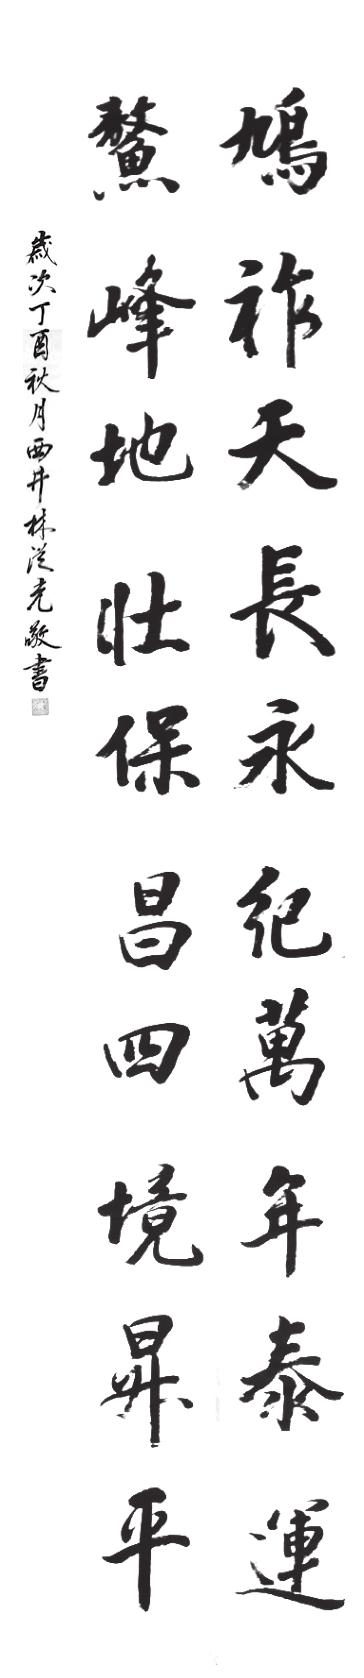 鳩祚天長永紀萬年泰運
鰲峰地壯保昌四境昇平
歲次丁酉秋月西井林從堯敬書